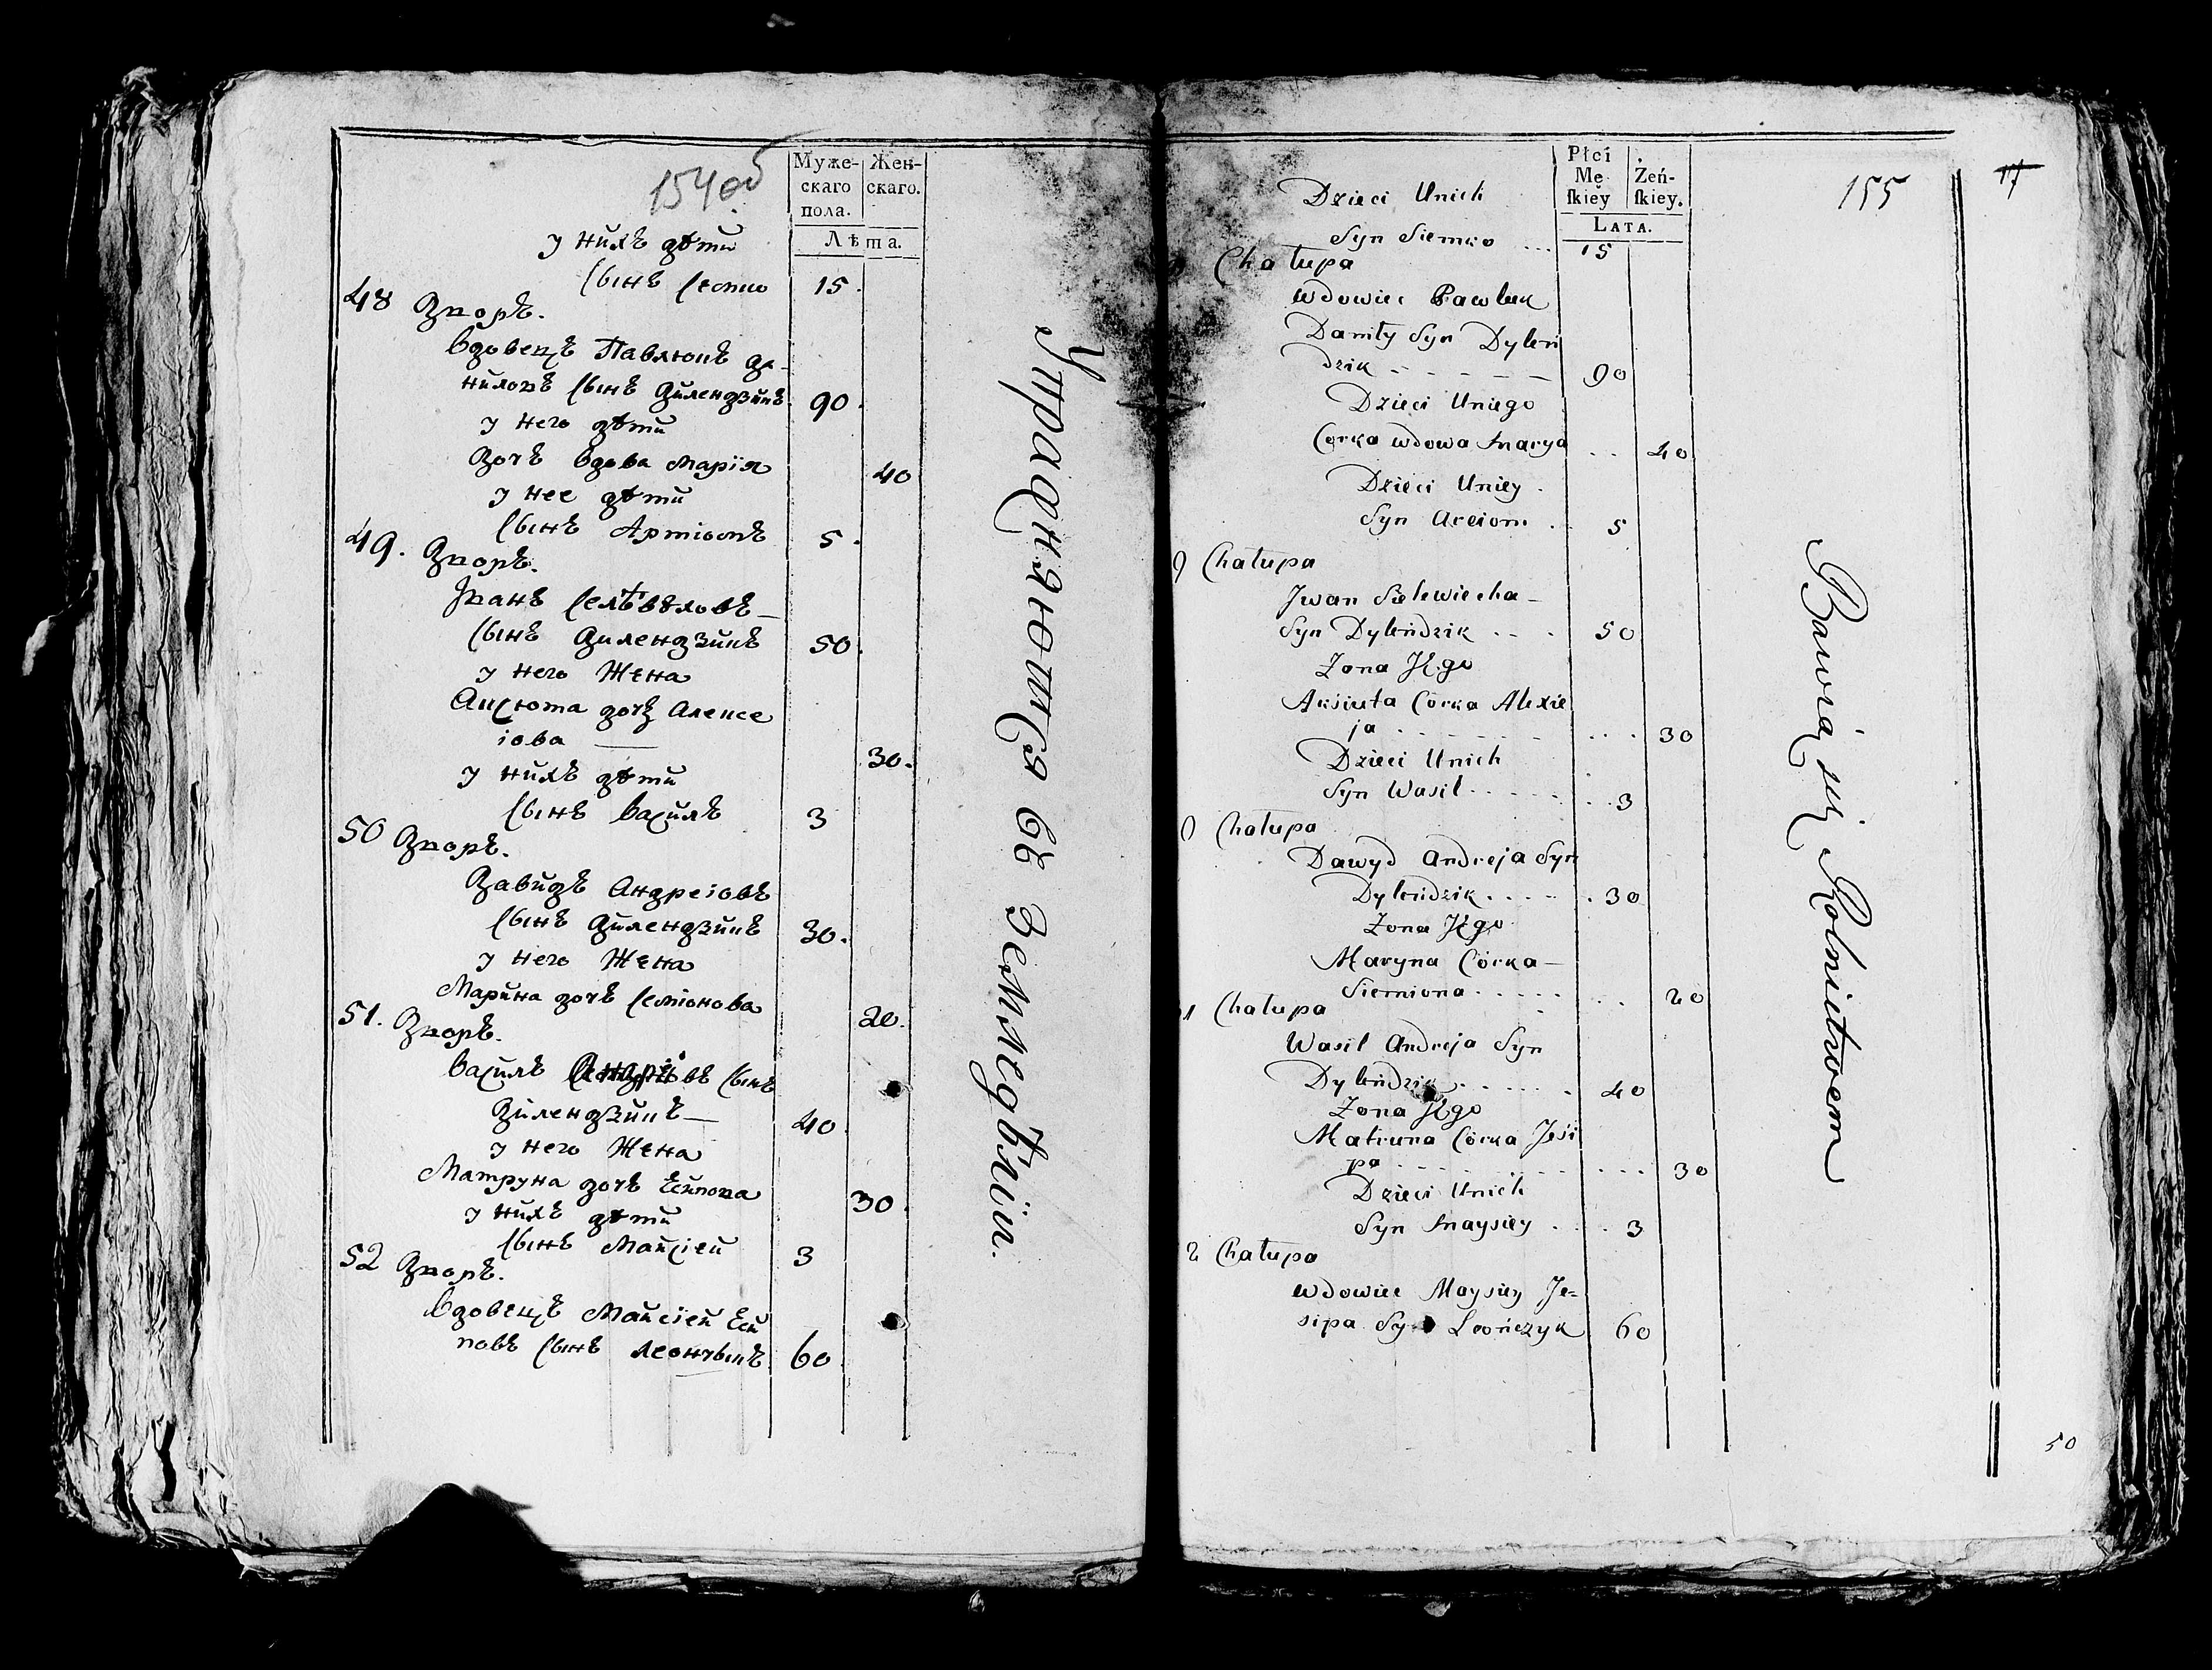 154об
Муже-
скаго
пола.
Жен-
скаго.
Лѣта.
у нихъ дѣти
сынъ Семко 15.
48 Дворъ.
Вдовецъ Павлюкъ Да-
ниловъ сынъ Дилендзикъ 90.
у него дѣти
Дочь вдова Марїя 40
у нее дѣти
сынъ Артіомъ 5.
49. Дворъ.
Іванъ Селѣвѣховъ—
сынъ Дилендзикъ 50.
у него Жена
Аксюта дочь Алексе
іова — 30.
у нихъ дѣти
сынъ Василь 3
50 Дворъ.
Давидъ Андреіовъ
сынъ Дилендзикъ 30.
у него Жена
Марина дочь Семіонова 20.
51. Дворъ.
Василь Андріовъ сынъ
Дилендзикъ— 40.
у него Жена
Матруна дочь Есипова 30.
у нихъ дѣти
сынъ Майсіей 3
52 Дворъ.
Вдовецъ Майсїей Еси
повъ сынъ Леончыкъ 60.
Упражняются въ Земледѣліи.
155
Płci
Mę
ſkiey
Żeń-
ſkiey.
LATA.
Dzieci Unich
Syn Siemko ... 15
Chałupa
Wdowiec Pawluk
Daniły Syn Dyleń
dzik - - - - - 90
Dzieci Uniego
Corka wdowa Marya .. 40
Dzieci Uniey.
Syn Arciom . 5
9 Chałupa
Jwan Selewiecha—
Syn Dyleńdzik - - . 50
Zona JEgo
Aksiuta Córka Alexie
ja - - - - - ... 30
Dzieci Unich
Syn Wasil - - - - - ..3
0 Chałupa
Dawyd Andreja Syn
Dyleńdzik . - - - . 30
Zona JEgo
Maryna Córka—
Siemiona . - - - . .. 20
1 Chałupa
Wasil Andreja Syn
Dyleńdzik . - - - - . 40
Zona JEgo
Matruna Córka Jesi
pa - - - - - - - ... 30
Dzieci Unich
Syn Maysiey . . . 3
2 Chałupa
Wdowiec Maysiey Je=
sipa Syn Leończyk 60
Bawią się Rolnictwem
50